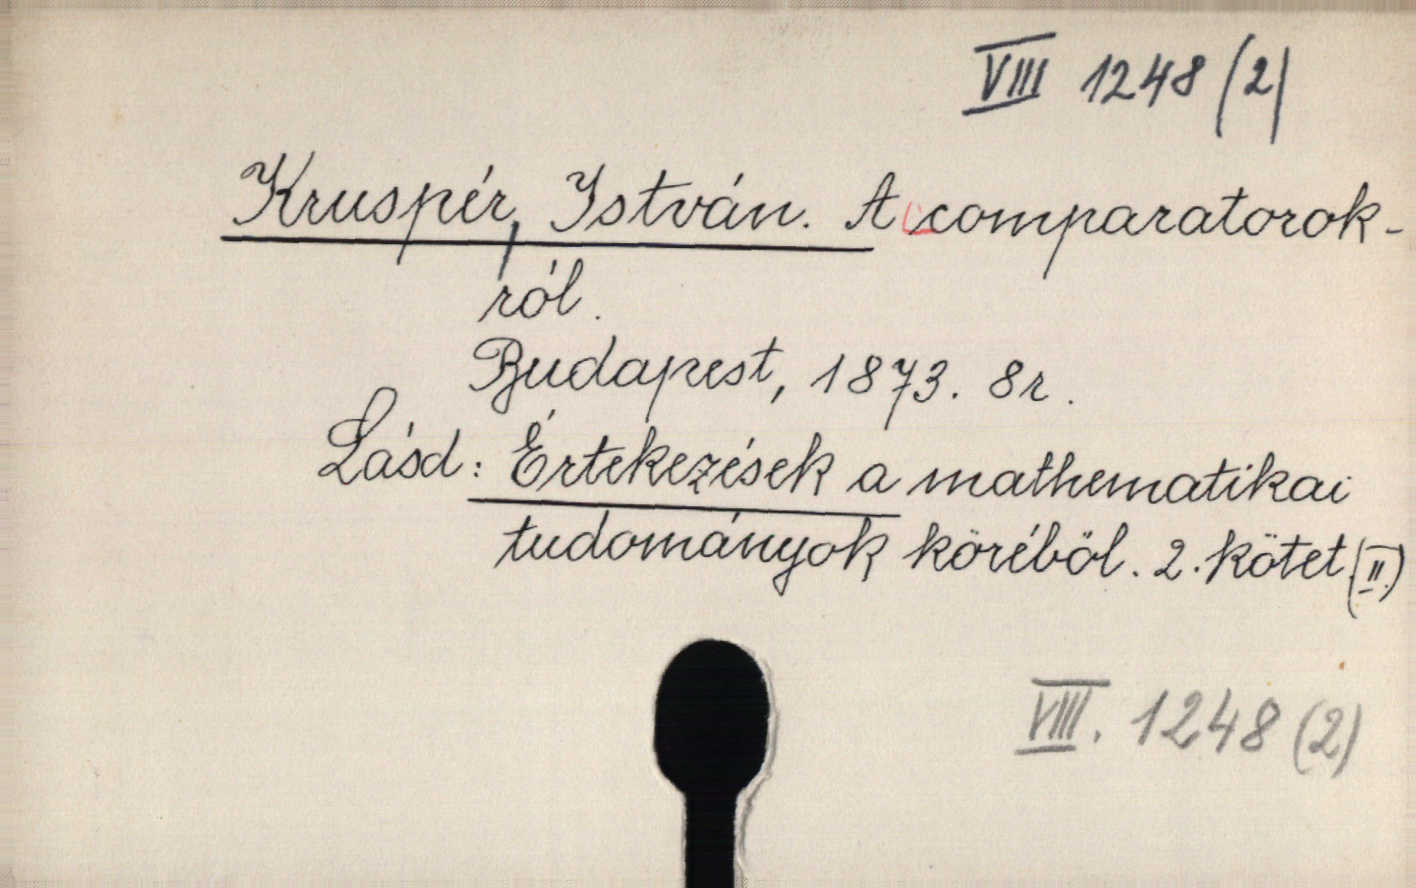 VIII 1248 (2)
Kruspér, István. A comparatorok-
ról.
Budapest, 1873. 8r.
Lásd: Értekezések a mathematikai
tudományok köréböl. 2. kötet (II.)
VIII. 1248 (2)